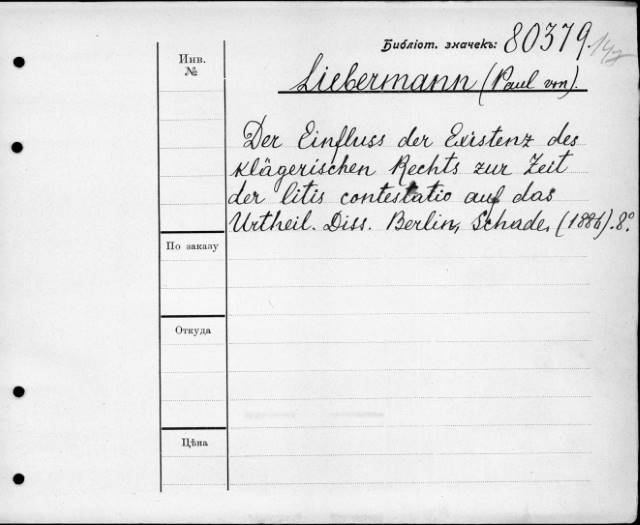 Библіот. значекъ: 80379
Инв.
№
Liebermann (Paul von).
Der Einfluss der Existenz des
klägerischen Rechts zur Zeit
der litis contestatio auf das
Urtheil. Diss. Berlin, Schade, (1886). 8.°
По заказу
Откуда
Цѣна